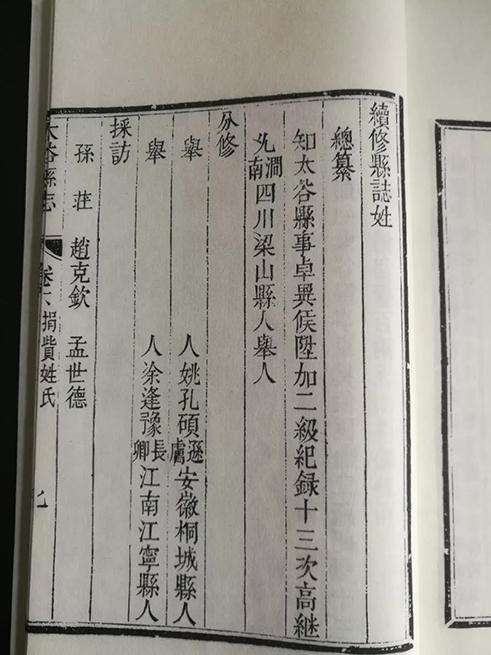 續修縣誌姓
總纂
知太谷縣事卓異候陞加二級紀録十三次高継
允澗南四川梁山縣人舉人
分修
舉人姚孔碩遜膚安徽桐城縣人
舉人余逢豫長卿江南江寧縣人
採訪
孫荘 趙克欽 孟世德
太谷縣志 卷六 捐貲姓氏 九